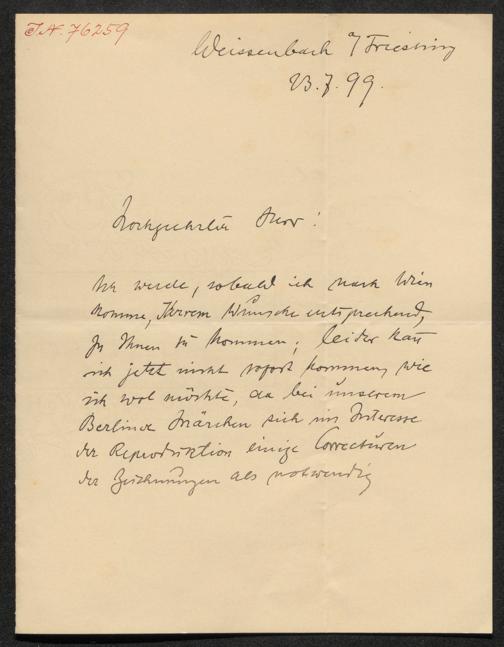 J.N. 76259
Weissenbach a/Triesting
23.7.99.
Hochgeehrter Herr!
Ich werde, sobald ich nach Wien
komme, Ihrem Wunsche entsprechend,
zu Ihnen zu kommen; leider kann
ich jetzt nicht sofort kommen, wie
ich wol möchte, da bei unserem
Berliner Märchen sich im Interesse
der Reproduktion einige Correcturen
der Zeichnungen als notwendig